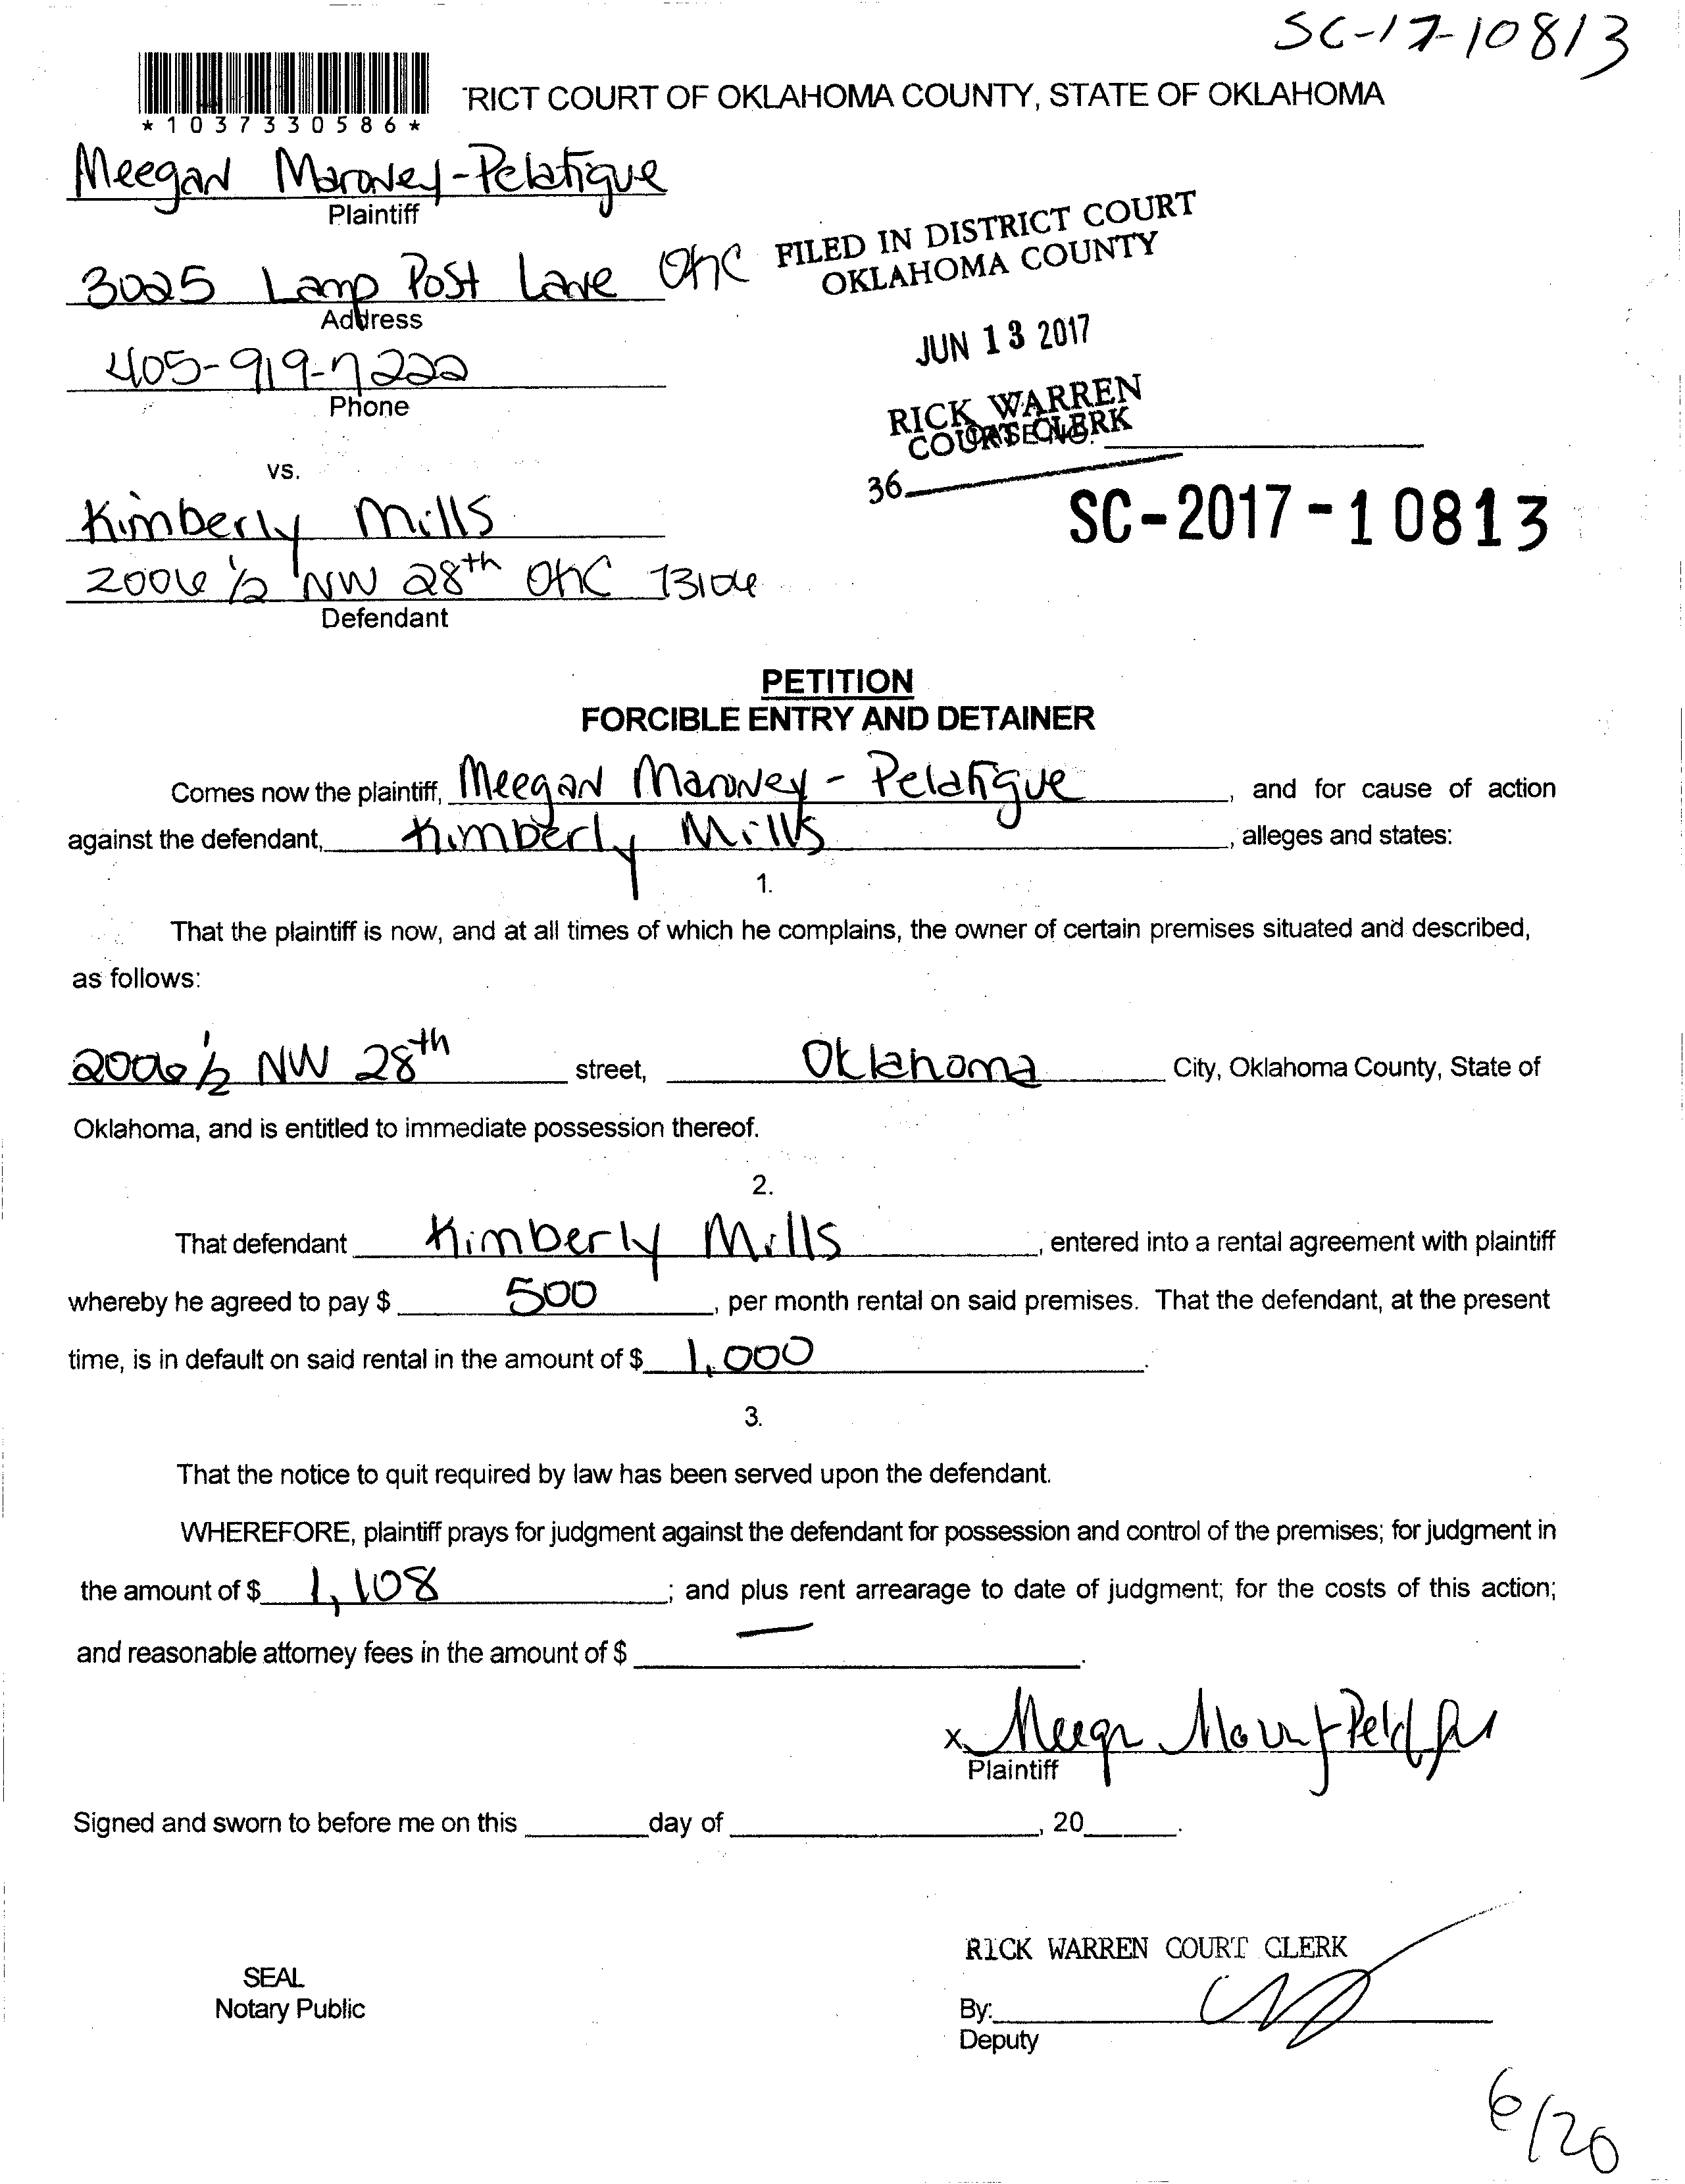 SC-17-10813
*1037330586*
RICT COURT OF OKLAHOMA COUNTY, STATE OF OKLAHOMA
Meegan Maroney-Pelatigue
Plaintiff
FILED IN DISTRICT COURT
OKLAHOMA COUNTY
3025 Lamp Post Lane OKC
Address
JUN 13 2017
405-919-7222
Phone
RICK WARREN
COURT CLERK
CASE NO.
36
vs.
SC-2017-10813
Kimberly Mills
2006 1/2 NW 28th OKC 73106
Defendant
PETITION
FORCIBLE ENTRY AND DETAINER
Comes now the plaintiff, Meegan Maroney - Pelatigue, and for cause of action
against the defendant, Kimberly Mills, alleges and states:
1.
That the plaintiff is now, and at all times of which he complains, the owner of certain premises situated and described,
as follows:
2006 1/2 NW 28th street, Oklahoma City, Oklahoma County, State of
Oklahoma, and is entitled to immediate possession thereof.
2.
That defendant Kimberly Mills, entered into a rental agreement with plaintiff
whereby he agreed to pay $ 500, per month rental on said premises. That the defendant, at the present
time, is in default on said rental in the amount of $ 1,000.
3.
That the notice to quit required by law has been served upon the defendant.
WHEREFORE, plaintiff prays for judgment against the defendant for possession and control of the premises; for judgment in
the amount of $ 1,108; and plus rent arrearage to date of judgment; for the costs of this action;
and reasonable attorney fees in the amount of $ .
x
Plaintiff
Signed and sworn to before me on this day of , 20 .
RICK WARREN COURT CLERK
SEAL
Notary Public
By:
Deputy
6/20